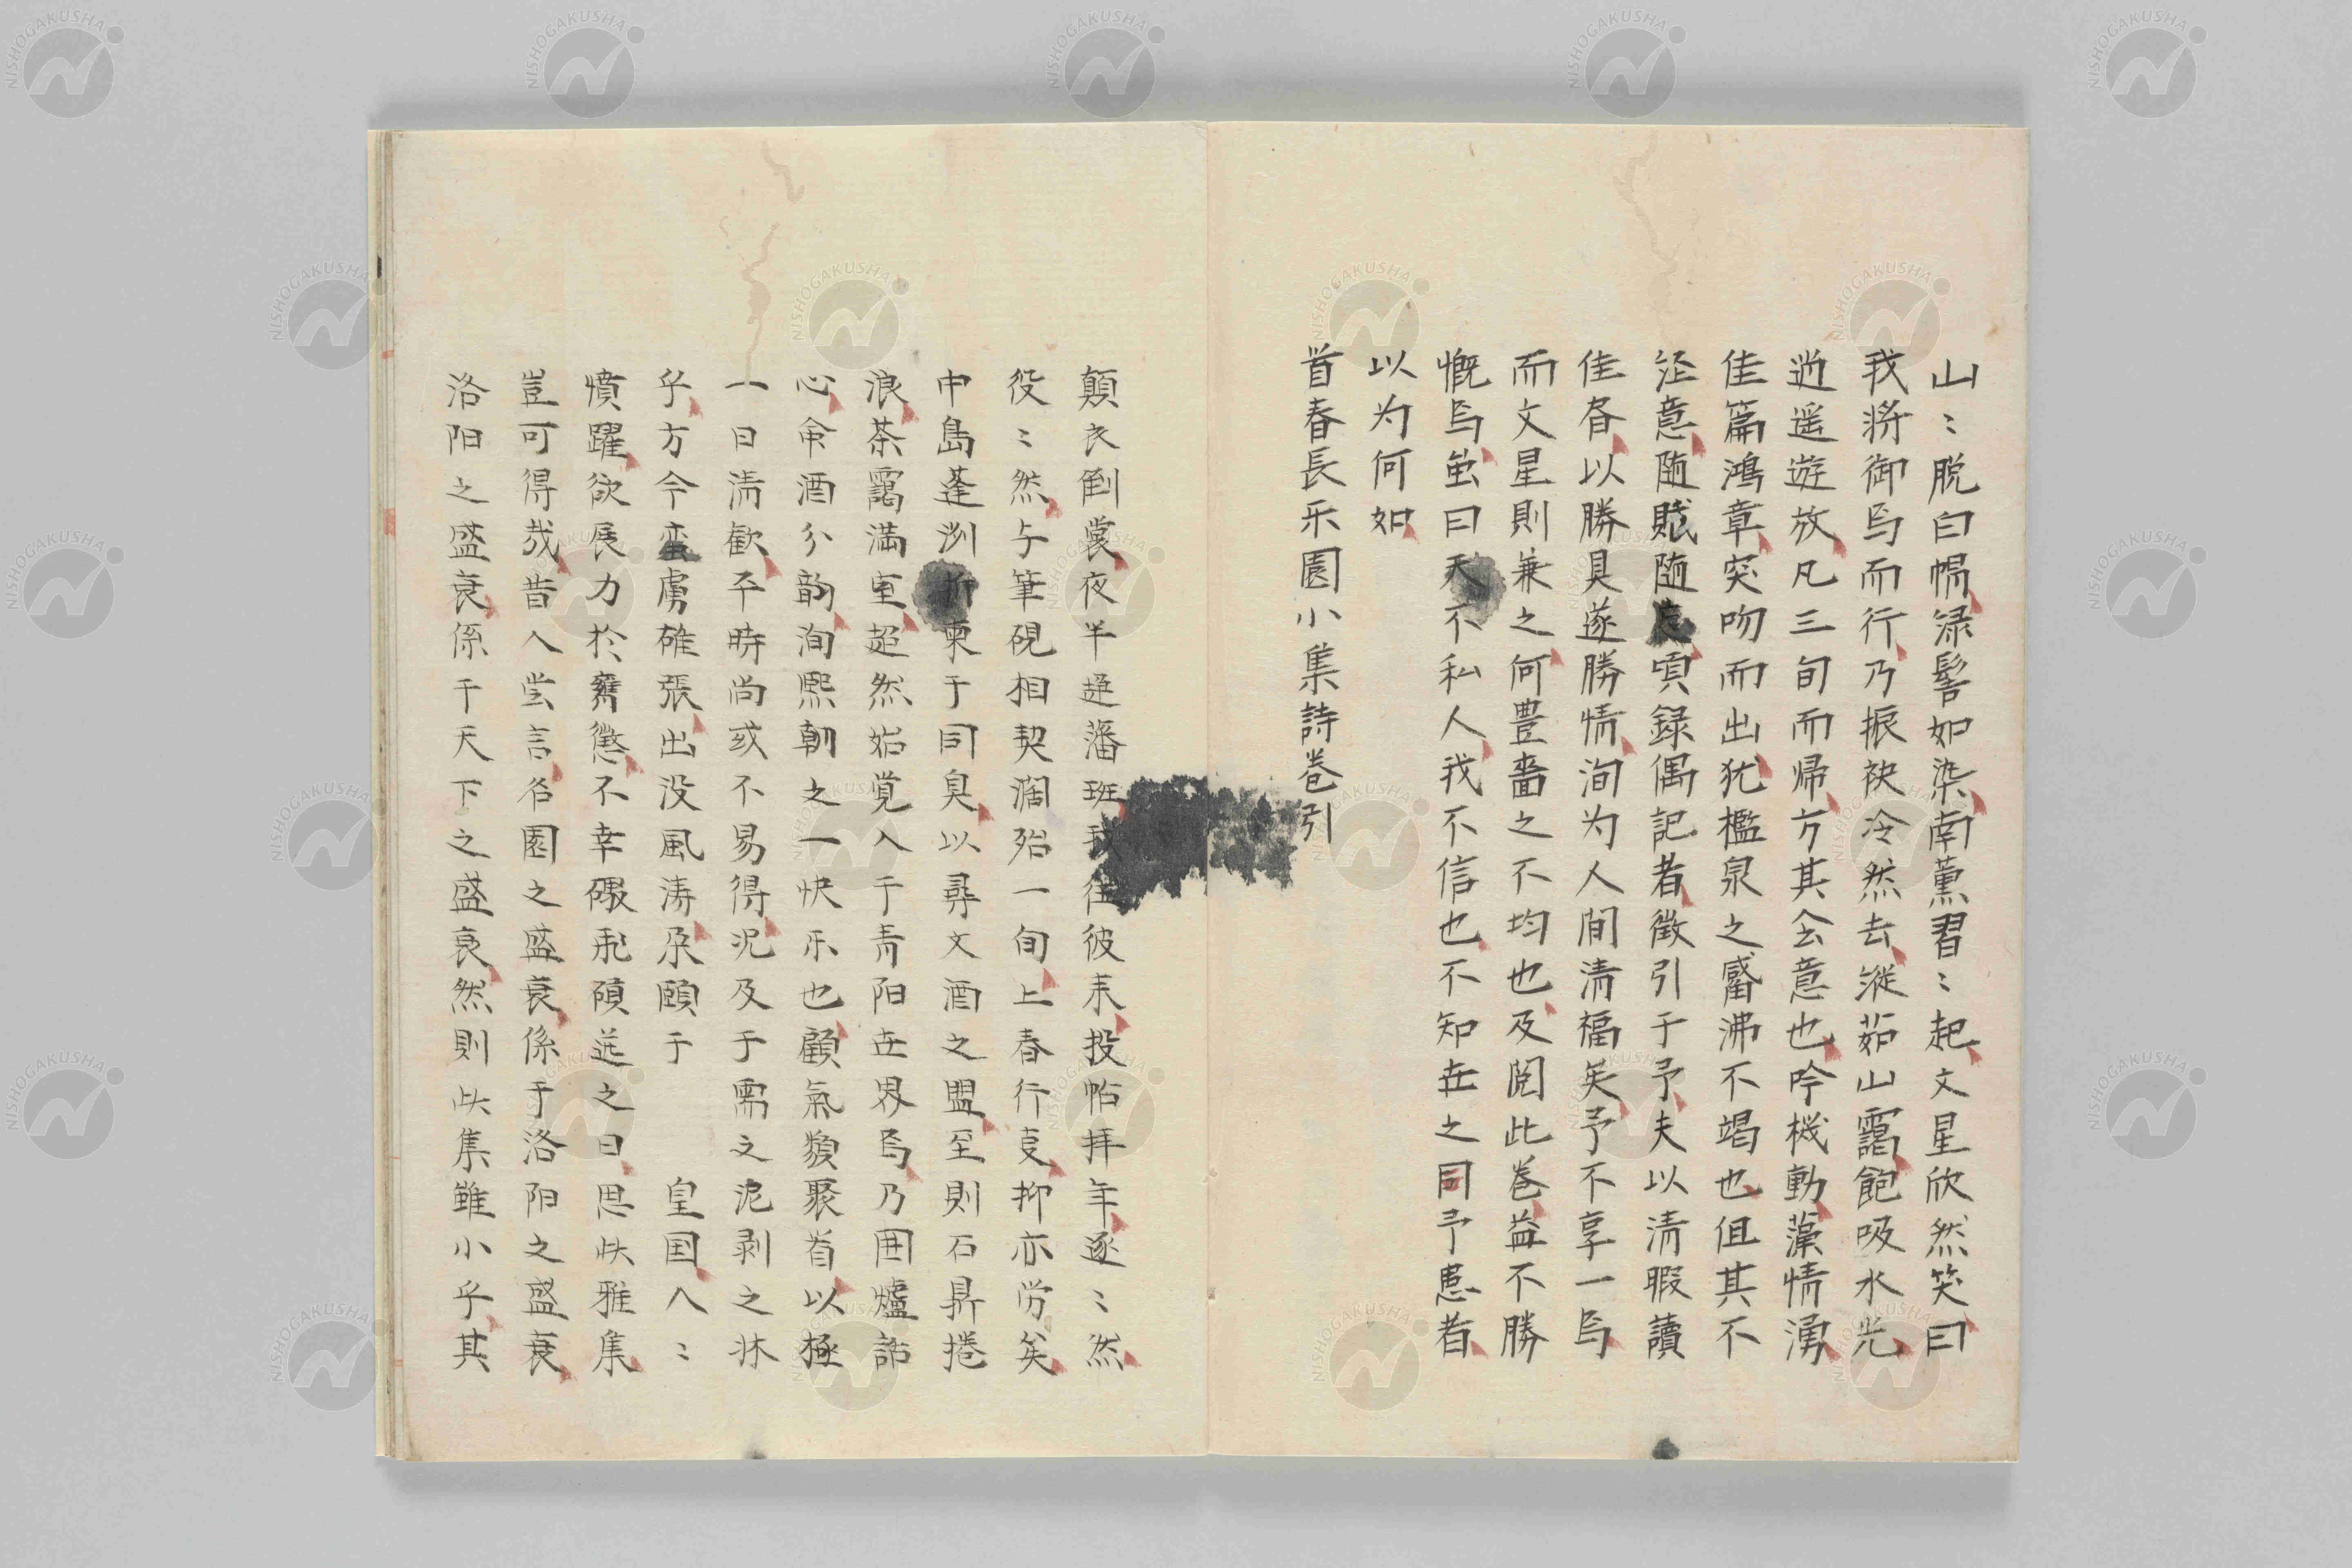 山〻脱白幘緑髻如染南薫習〻起文星欣然笑曰
我将御焉而行乃振袂冷然去蹤茹山靄飽吸水光
逍遥遊放凡三旬而帰方其会意也吟機動藻情湧
佳篇鴻章突吻而出犹檻泉之觱沸不竭也但其不
注意随賦随忘頃録偶記者徴引于予夫以清暇讀
佳眘以勝具遂勝情洵为人間清福矣予不享一焉
而文星則兼之何豊嗇之不均也及閲此巻益不勝
慨焉蛍曰天不私人我不信也不知世之同予患者
以为何如
首春長乐園小集詩巻引
顛衣倒裳夜半趨藩班我往彼来投帖拝年逐〻然
役〻然与筆硯相契濶殆一旬上春行春抑亦労矣
中島蓬洲折柬于同臭以尋文酒之盟至則石鼎捲
浪茶靄満室超然始覚入于青阳世界焉乃囲爐話
心命酒分韵洵熙朝之一快乐也顧氣類聚首以極
一日清歓平時尚或不易得况及于需之泥剥之牀
乎方今蛮虜碓張出没風涛朶頤于 皇国人〻
憤躍欲展力於膺懲不幸 之日思此雅集
豈可得哉昔人尝言名園之盛衰係于洛阳之盛衰
洛阳之盛衰係于天下之盛衰然則此集雖小乎其
NISHOGAKUSHA